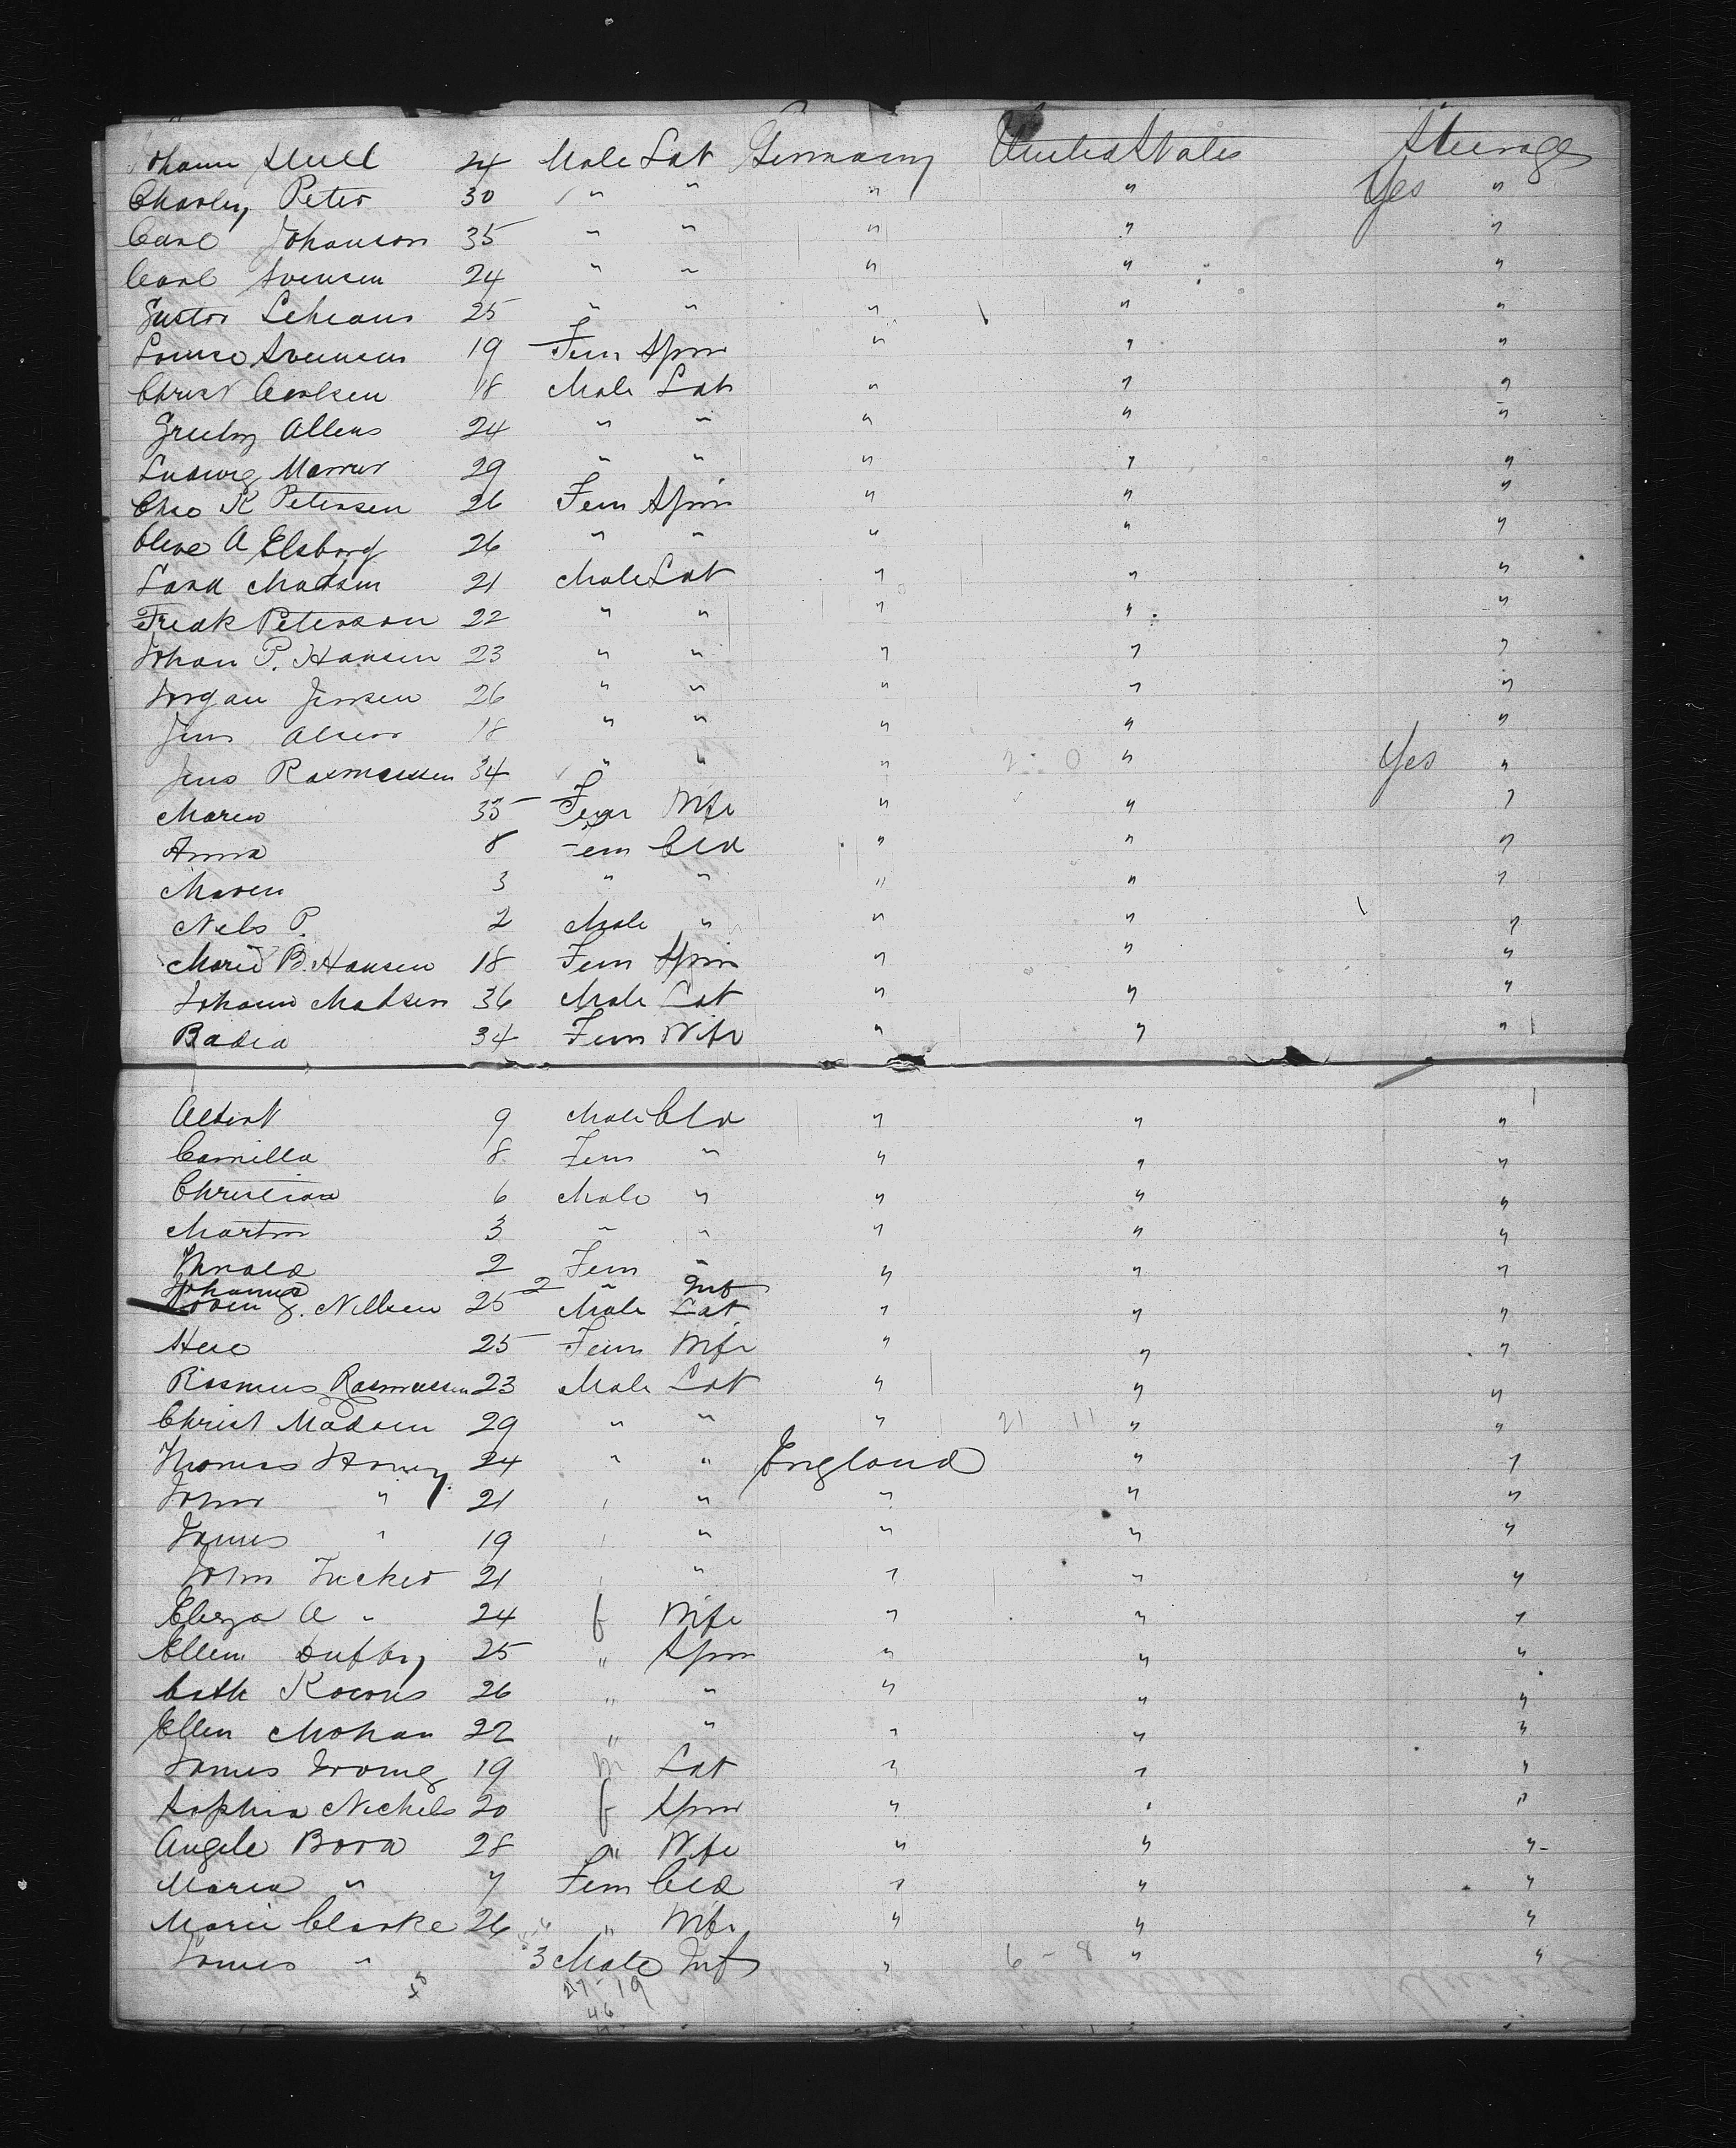 Johann Stull 24 Male Lab Germany United States Steerage
Charley Peter 30 " " " " Yes "
Carl Johanson 35 " " " " "
Carl Svensen 24 " " " " "
Gustor 25 " " " " "
Louise Svensen 19 Fem Spin " " "
Christ Carlsen 18 Male Lab " " "
Allens 24 " " " " "
Ludwig 29 " " " " "
K Petersen 26 Fem Spin " " "
Oline A Elsborg 26 " " " " "
Madsen 21 Male Lab " " "
Fredk Peterson 22 " " " " "
Johan P. Hansen 23 " " " " "
Jorgan Jensen 26 " " " " "
Jens Olsen 18 " " " " "
Jens Rasmussen 34 " " " 2 0 " Yes "
Maren 35 Fem Wife " " "
Anna 8 Fem Cld " " "
Maren 3 " " " " "
Nels P. 2 Male " " " "
Marie B. Hansen 18 Fem Spin " " "
Johann Madsen 36 Male Lab " " "
Badia 34 Fem Wife " " "
Albert 9 Male Cld " " "
Camilla 8 Fem " " " "
Christian 6 Male " " " "
Martin 3 " " " " "
2 Fem " " " "
Johanne 2 " Inf
Soren J. Nillsen 25 Male Lab " " "
25 Fem Wife " " "
Rasmus Rasmussen 23 Male Lab " " "
Christ Madsen 29 " " " 21 11 " "
Thomas 24 " " England " "
John " 21 " " " " "
James " 19 " " " " "
John Tucker 21 " " " " "
Eleza A " 24 f Wife " " "
Ellen Duffy 25 " Spin " " "
Cath 26 " " " " "
Ellen Mohan 22 " " " " "
James Irving 19 m Lab " " "
Sophia Nichels 20 f Spin " " "
Angele Bova 28 " Wife " " "
Maria " 7 Fem Cld " " "
Marie Clarke 26 " Wife " " "
James " 3 Male Inf " 6 - 8 " "
27 - 19
46